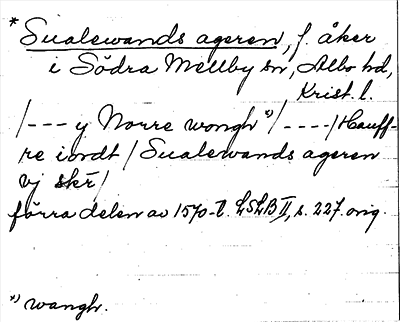 * Sualewands ageren, f. åker
i Södra Mellby sn, Albo hd,
Krist. l.
/--- y Norre wongh *)/----/Hauff-
re iordt / Sualewands ageren
vj skr/
förra delen av 1570-t. LSLB II, s. 227. orig.
*) wangh.